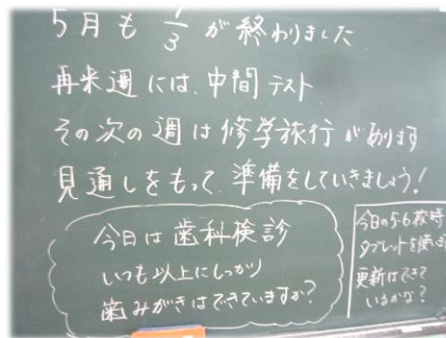 5月も 1/3 が終わりました
再来週には、中間テスト
その次の週は修学旅行があります
見通しをもって、準備をしていきましょう!
今日は歯科検診
いつも以上にしっかり
歯みがきはできていますか?
今日の 校時
タブレットを使い
更新はできて
いるかな?